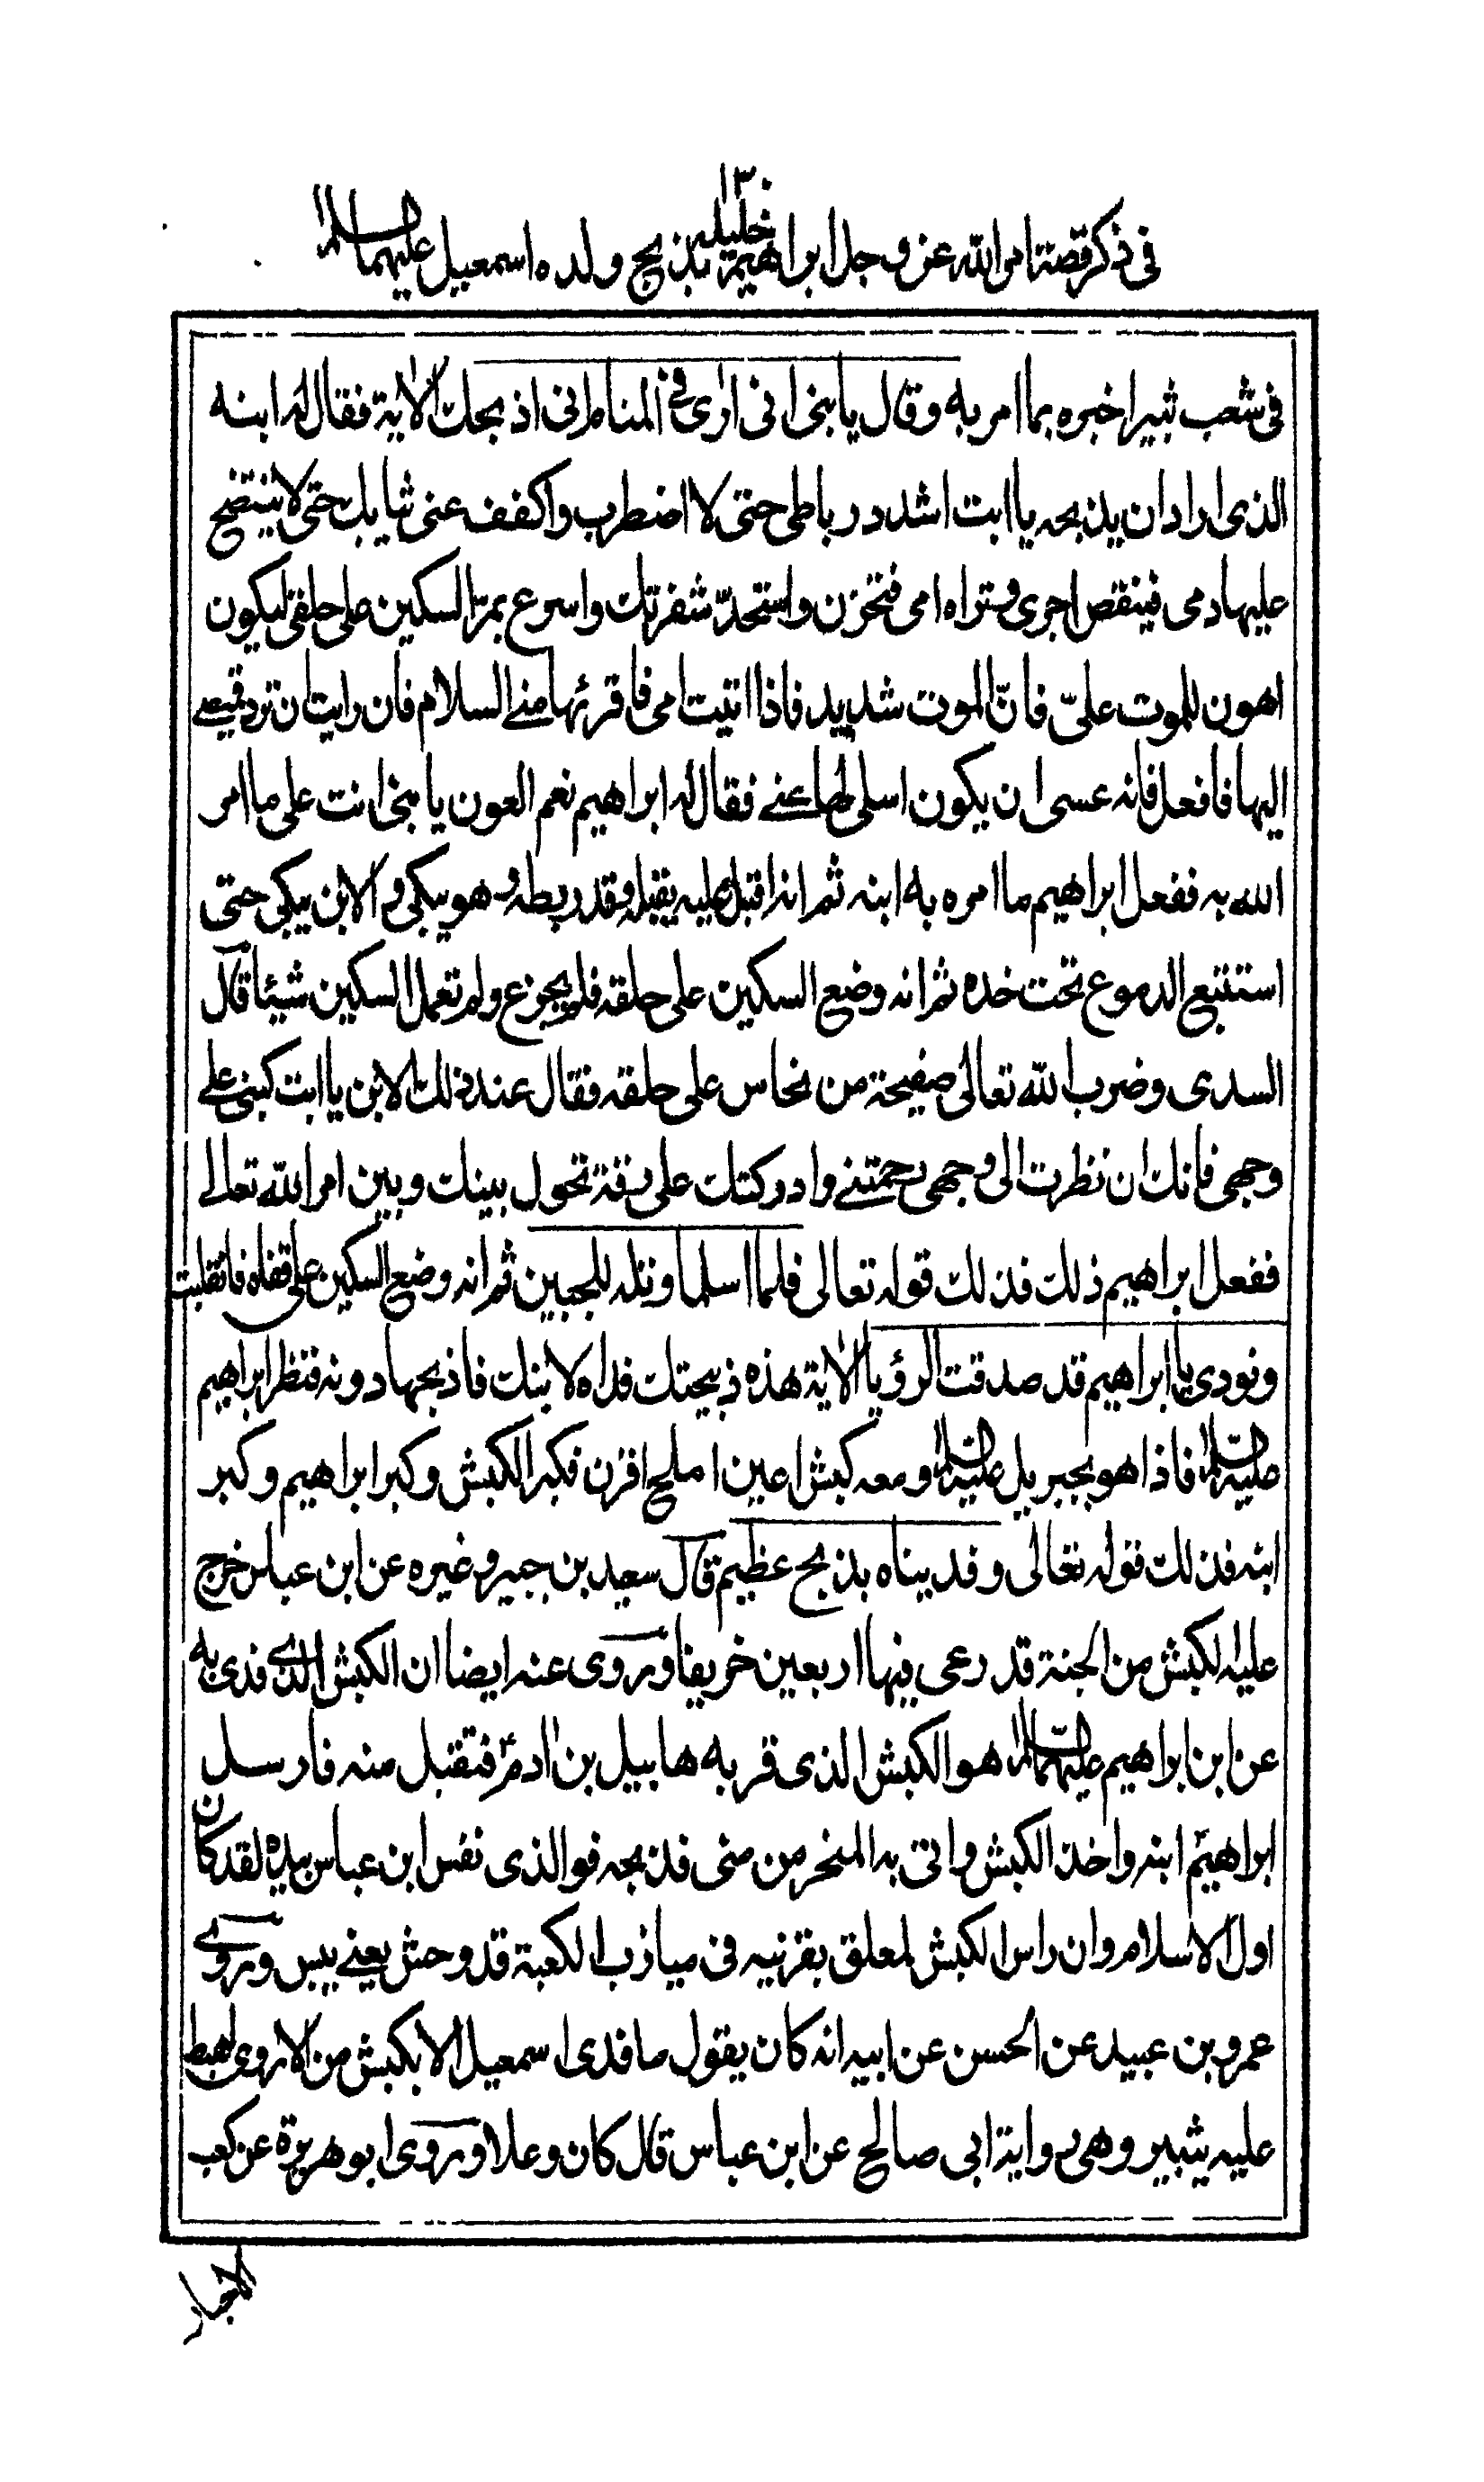 ١٣٠
في ذكر قصة امر الله عز وجل ابراهيم خليله بذبح ولده اسمعيل عليهما السلام
في شعب ثبير اخبره بما امر به وقال يا بني اني ارى في المنام اني اذبحك الاية فقال له ابنه
الذي اراد ان يذبحه يا ابت اشدد رباطي حتى لا اضطرب واكفف عني ثيابك حتى لا ينتضح
عليها دمي فينقص اجري وتراه امي فتحزن واستحدّ شفرتك واسرع بمرّ السكين على حلقي ليكون
اهون للموت عليّ فانّ الموت شديد فاذا اتيت امي فاقرئها مني السلام فان رايت ان ترد قميصي
اليها فافعل فانه عسى ان يكون اسلى لها عني فقال له ابراهيم نعم العون يا بني انت على ما امر
الله به ففعل ابراهيم ما امره به ابنه ثم انه اقبل عليه يقبله وقد ربطه وهو يبكي والابن يبكي حتى
استنتبع الدموع تحت خده ثم انه وضع السكين على حلقه فلم يجزع ولم تعمل السكين شيئا قال
السدى وضرب الله تعالى صفيحة من نحاس على حلقه فقال عند ذلك الابن يا ابت كبني على
وجهي فانك ان نظرت الى وجهي رحمتني وادركتك على رقة تحول بينك وبين امر الله تعالى
ففعل ابراهيم ذلك فذلك قوله تعالى فلما اسلما وتله للجبين ثم انه وضع السكين على قفاه فانقلبت
ونودي يا ابراهيم قد صدقت الرؤيا الاية هذه ذبيحتك فداء لابنك فاذبحها دونه فنظر ابراهيم
عليه السلام فاذا هو بجبريل عليه السلام ومعه كبش اعين املح اقرن فكبر الكبش وكبر ابراهيم وكبر
ابنه فذلك قوله تعالى وفديناه بذبح عظيم قال سعيد بن جبير وغيره عن ابن عباس خرج
عليه الكبش من الجنة قد رعى فيها اربعين خريفا وروى عنه ايضا ان الكبش الذي فدى به
عن ابن ابراهيم عليهما السلام هو الكبش الذي قربه هابيل بن ادم فتقبل منه فارسل
ابراهيم ابنه واخذ الكبش واتى به المنحر من منى فذبحه فوالذي نفس ابن عباس بيده لقد كان
اول الاسلام وان راس الكبش لمعلق بقرنيه في ميازب الكعبة قد وحش يعني يبس وروي
عمرو بن عبيد عن الحسن عن ابيه انه كان يقول ما فدى اسمعيل الا بكبش من الاروى اهبط
عليه بثبير وهي رواية ابي صالح عن ابن عباس قال كان وعلا وروى ابو هريرة عن كعب